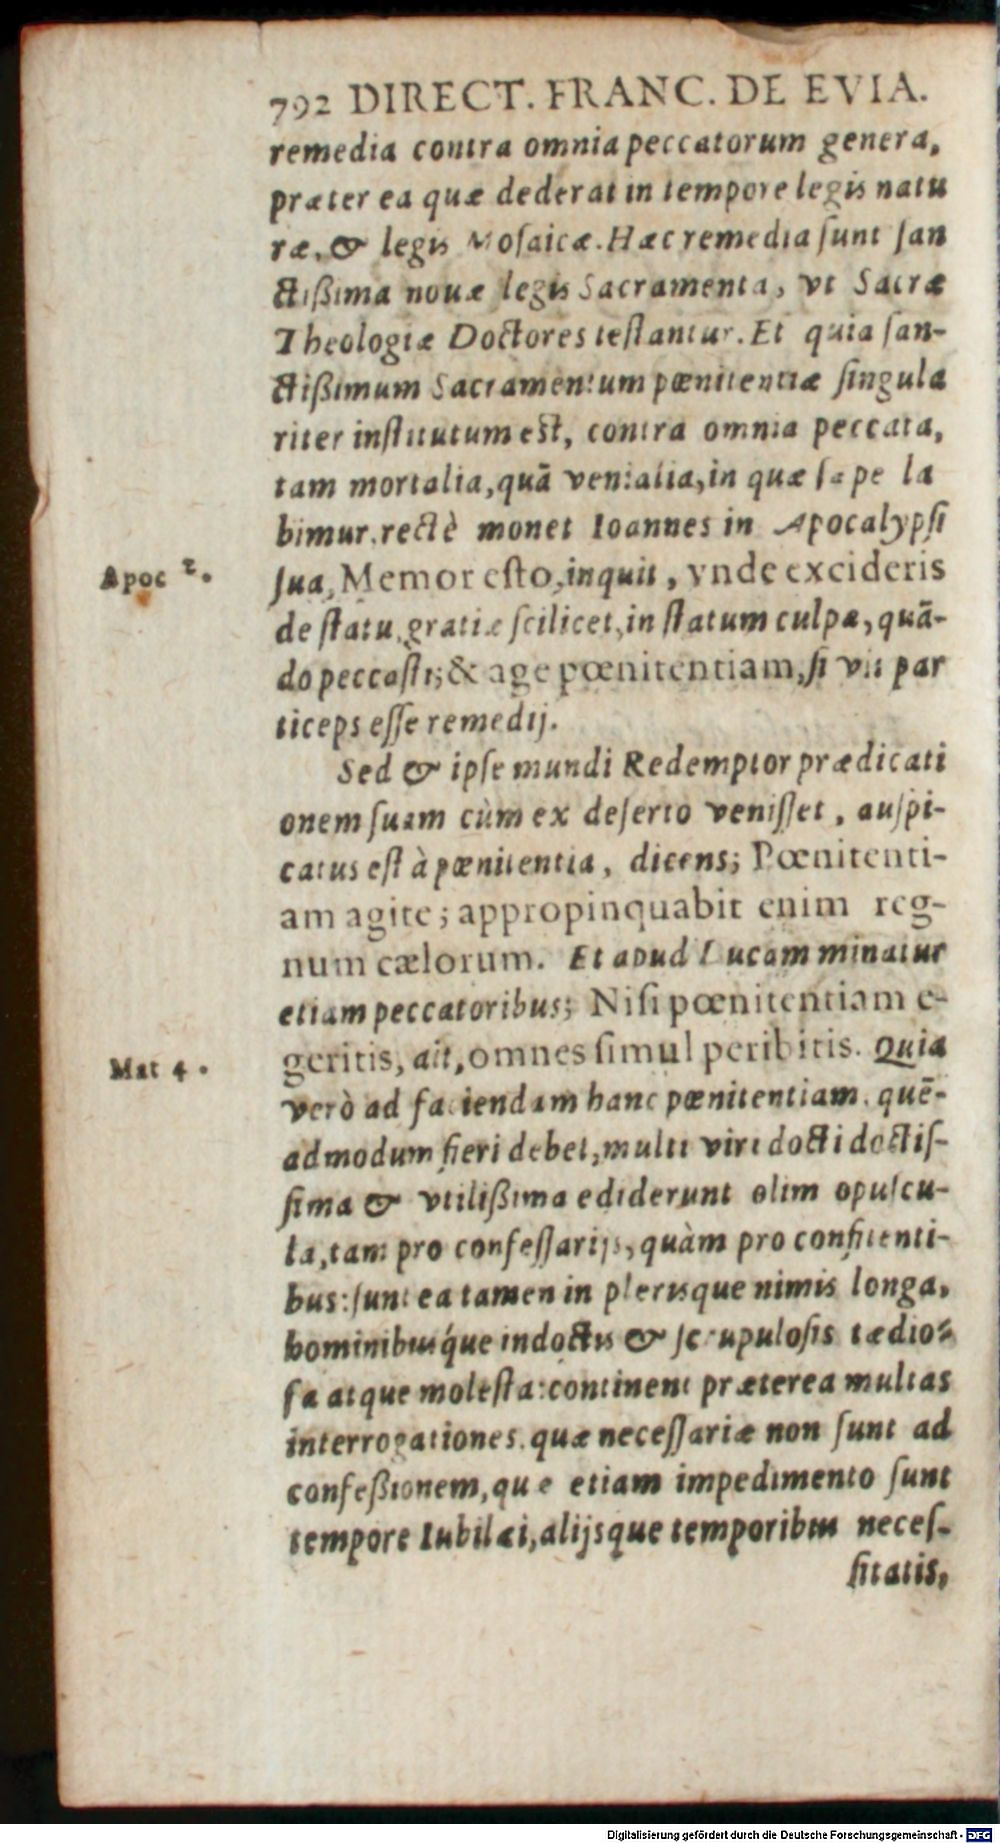 792 DIRECT. FRANC. DE EVIA.
remedia contra omnia peccatorum genera,
præter ea quæ dederat in tempore legis natu
ræ, & legis Mosaicæ. Hæc remedia sunt san
ctißima nouæ legis Sacramenta, vt Sacræ
Theologiæ Doctores testantur. Et quia san-
ctißimum Sacramentum pœnitentiæ singula
riter institutum est, contra omnia peccata,
tam mortalia, quā venialia, in quæ sæpe la
bimur. rectè monet Ioannes in Apocalypsi
Apoc 2.
sua, Memor esto, inquit, vnde excideris
de statu, gratiæ scilicet, in statum culpæ, quā-
do peccasti; & age pœnitentiam, si vis par
ticeps esse remedij.
Sed & ipse mundi Redemptor prædicati
onem suam cùm ex deserto venisset, auspi-
catus est à pœnitentia, dicens; Pœnitenti-
am agite; appropinquabit enim reg-
num cælorum. Et apud Lucam minatur
etiam peccatoribus; Nisi pœnitentiam e-
Mat 4.
geritis, ait, omnes simul peribitis. Quia
verò ad faciendam hanc pœnitentiam, quē-
admodum fieri debet, multi viri docti doctis-
sima & vtilißima ediderunt olim opuscu-
la, tam pro confessarijs, quàm pro confitenti-
bus: sunt ea tamen in plerisque nimis longa,
hominibusq́ue indoctis & scrupulosis tædio-
sa atque molesta: continent præterea multas
interrogationes, quæ necessariæ non sunt ad
confeßionem, quæ etiam impedimento sunt
tempore Iubilæi, alijsque temporibus neces-
sitatis,
Digitalisierung gefördert durch die Deutsche Forschungsgemeinschaft - DFG